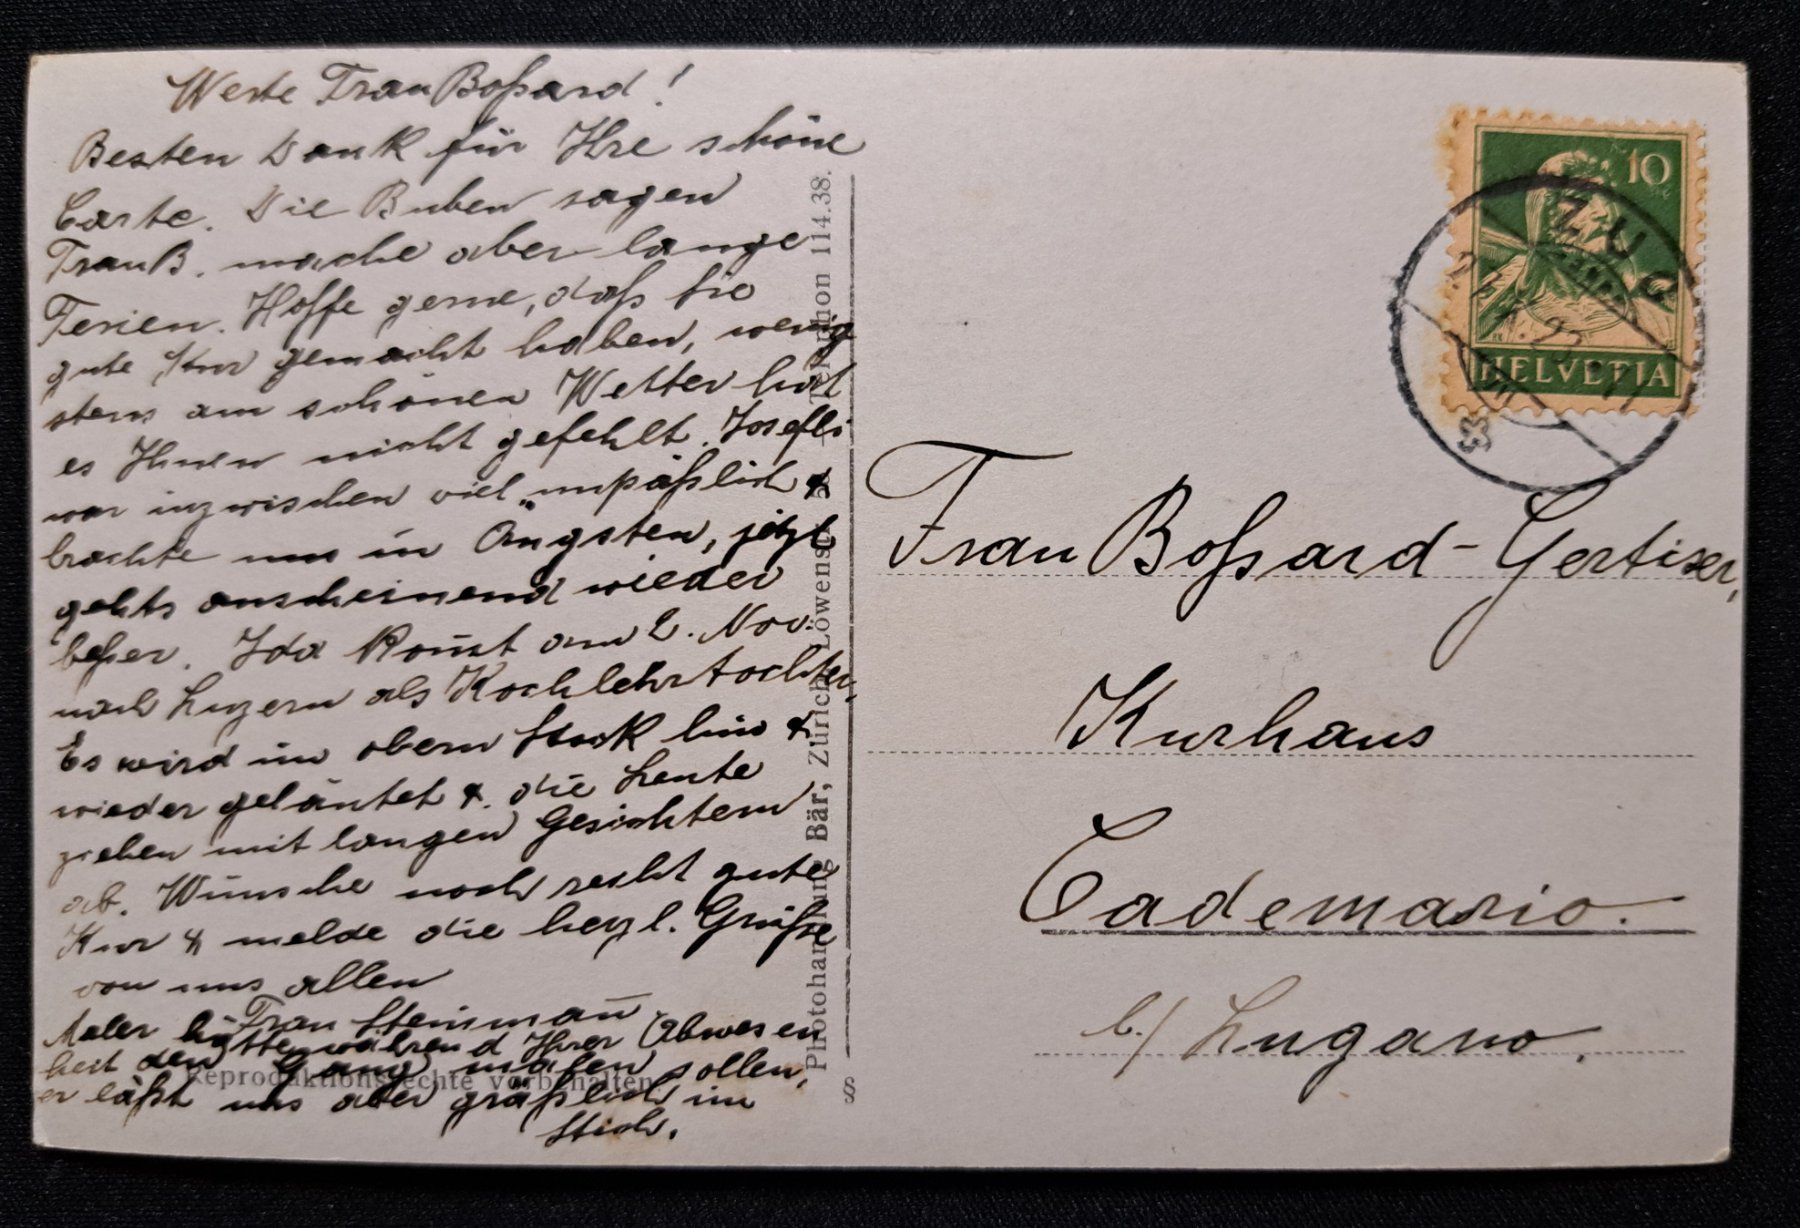 Werte Frau Boßard!
Besten Dank für Ihre schöne
Carte. Die Buben sagen
Frau B. mache aber lange
Ferien. Hoffe gerne, daß Sie
gute Kur gemacht haben, wenig
stens am schönen Wetter hat
es Ihnen nicht gefehlt. Josefli
war inzwischen viel unpäßlich &
brachte uns in Ängsten, jetzt
gehts anscheinend wieder
beßer. Ida kommt am 2. Nov.
nach Luzern als Kochlehrtochter,
Es wird im obern Stock hin &
wieder geläutet &. die Leute
ziehen mit langen Gesichtern
ab. Wünsche noch recht gute
Kur & melde die herzl. Grüße
von uns allen
Frau Steinmann
Maler hätte während Ihrer Abwesen
heit den Gang malen sollen,
er läßt uns aber gräßlich im
Stich.
Reproduktionsrechte vorbehalten.
Photohandlung Bär, Zürich, Löwenstr. Telephon 114.38.
§
10
HELVETIA
ZUG
Frau Boßard-Gertiser,
Kurhaus
Cademario.
b/ Lugano.